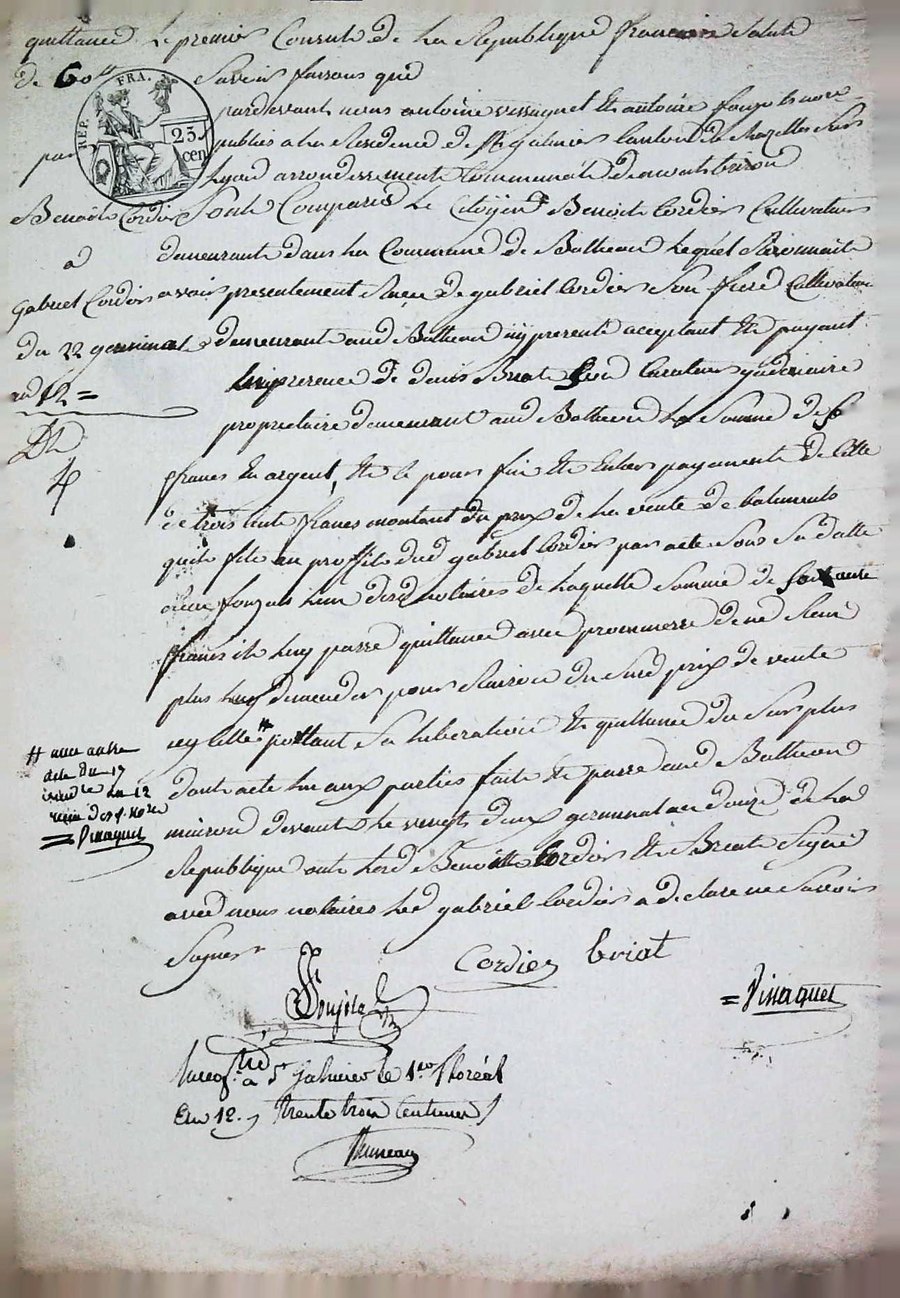 quittance
de 60 ll
par
Benoit Cordier
a
Gabriel Cordier
du 22 germinal
an 12 =
Le premier Consul de La Republique francaise Salut
Savoir faisons que
REP. FRA.
25 cen
pardevant nous antoine vissaguet Et antoine fougols nores
publics a La Residence de St galmier Canton de chazelles sur
Lyon arrondissement Communal de montbrison
Sont Comparus Le Citoyen Benoit Cordier Cultivateur
demeurant dans La Commune de Batheon Lequel Reconnait
avoir presentement Reçu de gabriel Cordier son frere Cultivateur
demeurant aud Batheon icy present acceptant Et payant
en presence de denis Briat Son Curateur judiciaire
proprietaire demeurant aud Batheon La Somme de 60
francs En argent, Et Ce pour fin Et Entier payement de Celle
de trois Cent francs montant du prix de La vente de batiments
quil fit au proffit dud gabriel Cordier par acte Sous Sa datte
Reçu fougols Lun desd notaires de Laquelle Somme de soixante
francs il Luy passe quittance avec promesse de ne Rien
plus Luy demender pour Raison du Susd prix de vente
icy Celle # portant Sa Liberation Et quittance du Surplus
dont acte Lu aux parties fait Et passé aud Batheon
maison devant Le vingt deux germinal an douze de La
Republique ont Lesd Benoitte Cordier Et Briat Signé
avec nous notaires Led gabriel Cordier a declare ne Savoir
Signer
# avec autre
acte du 17
an 12
desd. nores
= Vissaguet
Cordier briat
foujols
= Vissaguet
Enregtré a St Galmier le 1er floréal
En 12. Trente trois Centimes